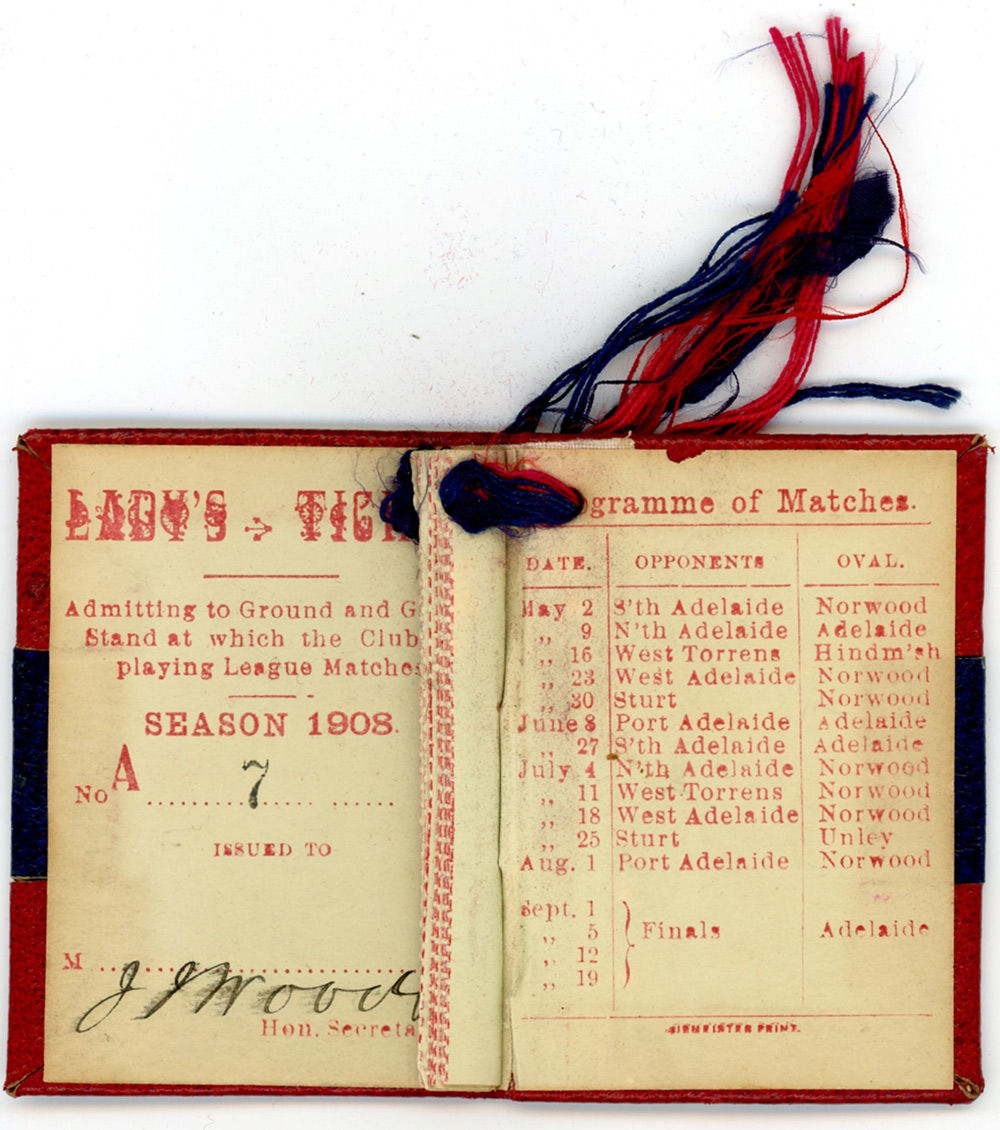 LADY'S TIC
Admitting to Ground and G
Stand at which the Club
playing League Matches
SEASON 1908.
No A 7
ISSUED TO
M
J J Wood
Hon. Secreta
ogramme of Matches.
DATE. OPPONENTS OVAL.
May 2 S'th Adelaide Norwood
,, 9 N'th Adelaide Adelaide
,, 16 West Torrens Hindm'sh
,, 23 West Adelaide Norwood
,, 30 Sturt Norwood
June 8 Port Adelaide Adelaide
,, 27 S'th Adelaide Adelaide
July 4 N'th Adelaide Norwood
,, 11 West Torrens Norwood
,, 18 West Adelaide Norwood
,, 25 Sturt Unley
Aug. 1 Port Adelaide Norwood
Sept. 1
,, 5 Finals Adelaide
,, 12
,, 19
PRINT.